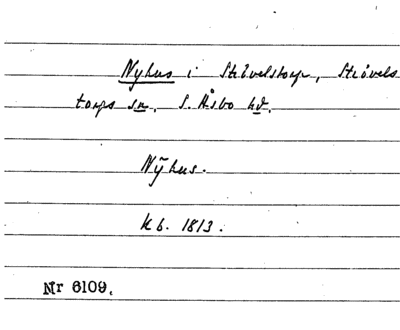 Nyhus i Strövelstorp, Strövels
torps sn. S. Åsbo hd.
Nÿhus.
Kb. 1813.
Nr 6109.